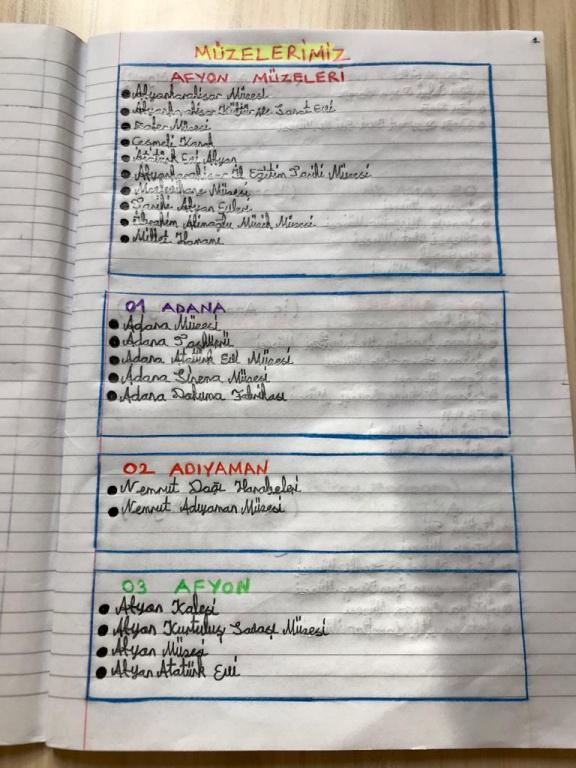 1
MÜZELERİMİZ
AFYON MÜZELERİ
Afyonkarahisar Müzesi
Afyonkarahisar Kültür ve Sanat Evi
Zafer Müzesi
Çeşmeli Konak
Atatürk Evi Afyon
Afyonkarahisar İl Eğitim Tarihi Müzesi
Mevlevihane Müzesi
Tarihi Afyon Evleri
İbrahim Alimoğlu Müzik Müzesi
Millet Hamamı
01 ADANA
Adana Müzesi
Adana Taşköprü
Adana Atatürk Evi Müzesi
Adana Sinema Müzesi
Adana Dokuma Fabrikası
02 ADIYAMAN
Nemrut Dağı Harabeleri
Nemrut Adıyaman Müzesi
03 AFYON
Afyon Kalesi
Afyon Kurtuluş Savaşı Müzesi
Afyon Müzesi
Afyon Atatürk Evi